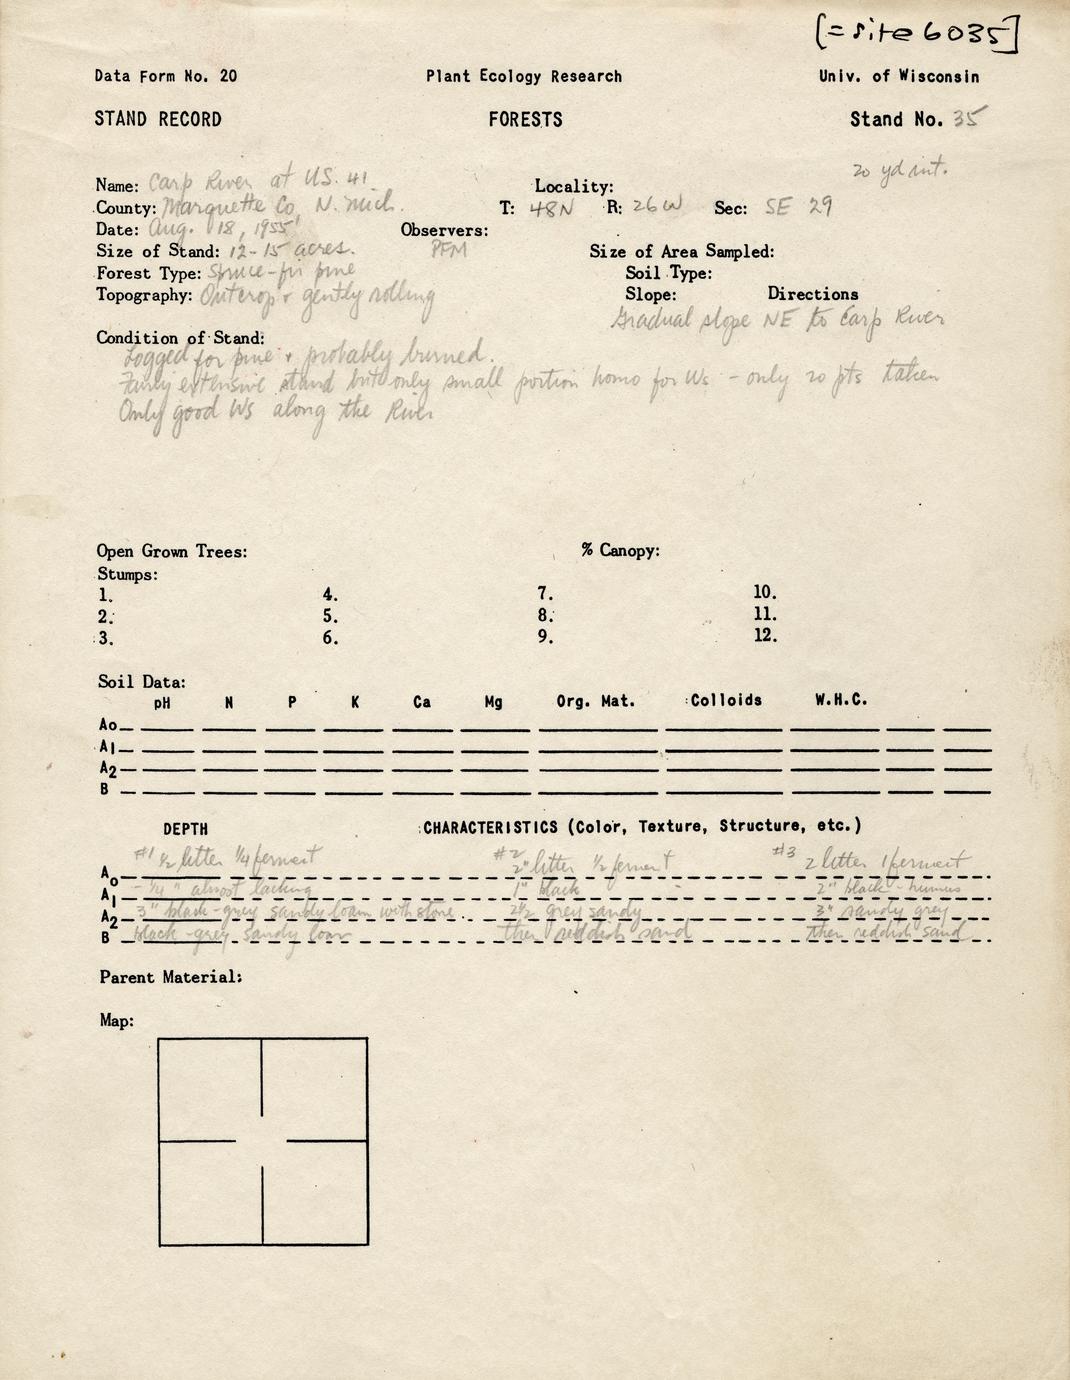 [= site 6035]
Data Form No. 20 Plant Ecology Research Univ. of Wisconsin
STAND RECORD FORESTS Stand No. 35
20 yd int.
Name: Carp River at US. 41 Locality:
County: Marquette Co, N. Mich. T: 48N R: 26W Sec: SE 29
Date: Aug. 18, 1955 Observers:
Size of Stand: 12-15 acres. PFM Size of Area Sampled:
Forest Type: Spruce-fir pine Soil Type:
Topography: Outcrop + gently rolling Slope: Directions
Gradual slope NE to Carp River
Condition of Stand:
Logged for pine + probably burned.
Fairly extensive stand but only small portion homo for Ws - only 20 pts taken
Only good Ws along the River
Open Grown Trees: % Canopy:
Stumps:
1. 4. 7. 10.
2. 5. 8. 11.
3. 6. 9. 12.
Soil Data:
pH N P K Ca Mg Org. Mat. Colloids W.H.C.
Ao
A1
A2
B
DEPTH CHARACTERISTICS (Color, Texture, Structure, etc.)
Ao #1 ½ litter ¼ ferment #2 2" litter ½ ferment #3 2 litter 1 ferment
A1 - ¼" almost lacking 1" black - 2" black-humus
A2 3" black-grey sandy loam with stone. 2½ grey sandy 3" sandy grey
B black-grey sandy loam then reddish sand then reddish sand
Parent Material:
Map: